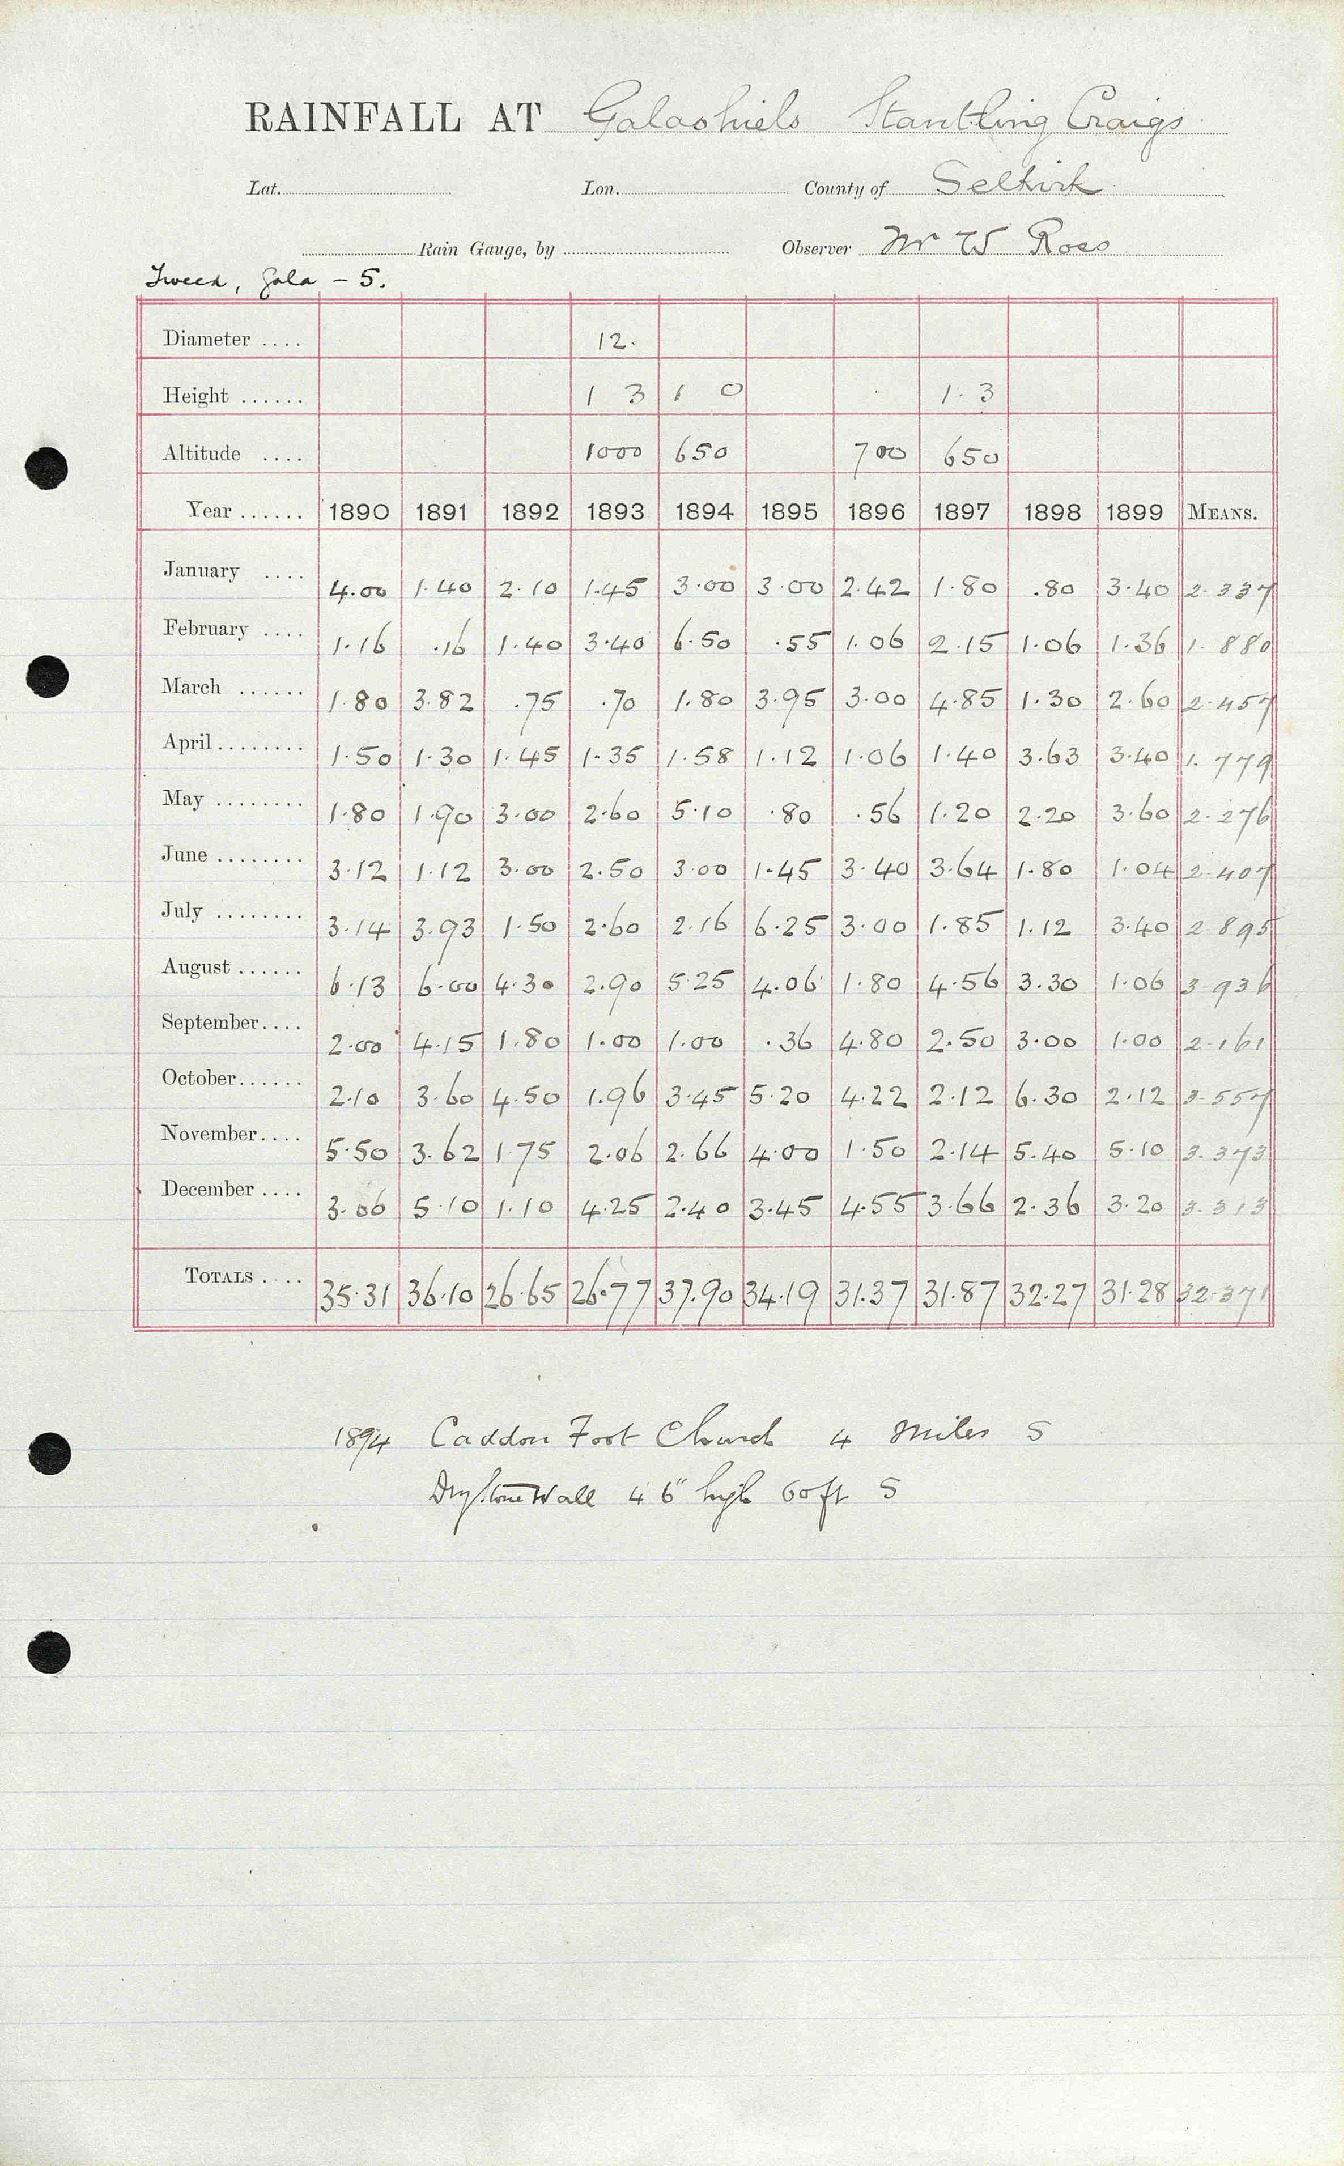 RAINFALL AT Galashiels Stantling Craigs
Lat. Lon. County of Selkirk
Rain Gauge, by Observer Mr W Ross
Tweed, Gala - 5.
Diameter .... 12.
Height ...... 1 3 1 0 1.3
Altitude .... 1000 650 700 650
Year ...... 1890 1891 1892 1893 1894 1895 1896 1897 1898 1899 MEANS.
January .... 4.00 1.40 2.10 1.45 3.00 3.00 2.42 1.80 .80 3.40 2.337
February .... 1.16 .16 1.40 3.40 6.50 .55 1.06 2.15 1.06 1.36 1.880
March ...... 1.80 3.82 .75 .70 1.80 3.95 3.00 4.85 1.30 2.60 2.457
April ........ 1.50 1.30 1.45 1.35 1.58 1.12 1.06 1.40 3.63 3.40 1.779
May ........ 1.80 1.90 3.00 2.60 5.10 .80 .56 1.20 2.20 3.60 2.276
June ........ 3.12 1.12 3.00 2.50 3.00 1.45 3.40 3.64 1.80 1.04 2.407
July ........ 3.14 3.93 1.50 2.60 2.16 6.25 3.00 1.85 1.12 3.40 2.895
August ...... 6.13 6.00 4.30 2.90 5.25 4.06 1.80 4.56 3.30 1.06 3.936
September .... 2.00 4.15 1.80 1.00 1.00 .36 4.80 2.50 3.00 1.00 2.161
October ...... 2.10 3.60 4.50 1.96 3.45 5.20 4.22 2.12 6.30 2.12 3.557
November .... 5.50 3.62 1.75 2.06 2.66 4.00 1.50 2.14 5.40 5.10 3.373
December .... 3.06 5.10 1.10 4.25 2.40 3.45 4.55 3.66 2.36 3.20 3.313
TOTALS .... 35.31 36.10 26.65 26.77 37.90 34.19 31.37 31.87 32.27 31.28 32.371
1894 Caddon Foot Church 4 miles S
Dry stone Wall 4 6" high 60 ft S